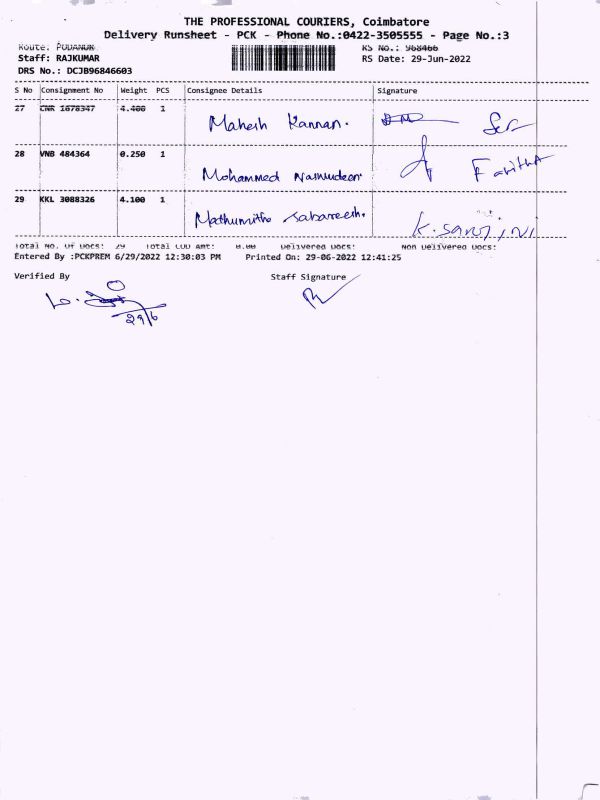 THE PROFESSIONAL COURIERS, Coimbatore
Delivery Runsheet - PCK - Phone No.:0422-3505555 - Page No.:3
Route: PODANUR RS No.: 968466
Staff: RAJKUMAR RS Date: 29-Jun-2022
DRS No.: DCJB96846603
S No Consignment No Weight PCS Consignee Details Signature
27 CNR 1678347 4.400 1 Mahesh Kannan.
28 VNB 484364 0.250 1 Mohammed Faritha
29 KKL 3088326 4.100 1 Mathumitha K. Sarojini
Total No. Of Docs: 29 Total COD Amt: 0.00 Delivered Docs: Non Delivered Docs:
Entered By :PCKPREM 6/29/2022 12:30:03 PM Printed On: 29-06-2022 12:41:25
Verified By Staff Signature
29/6